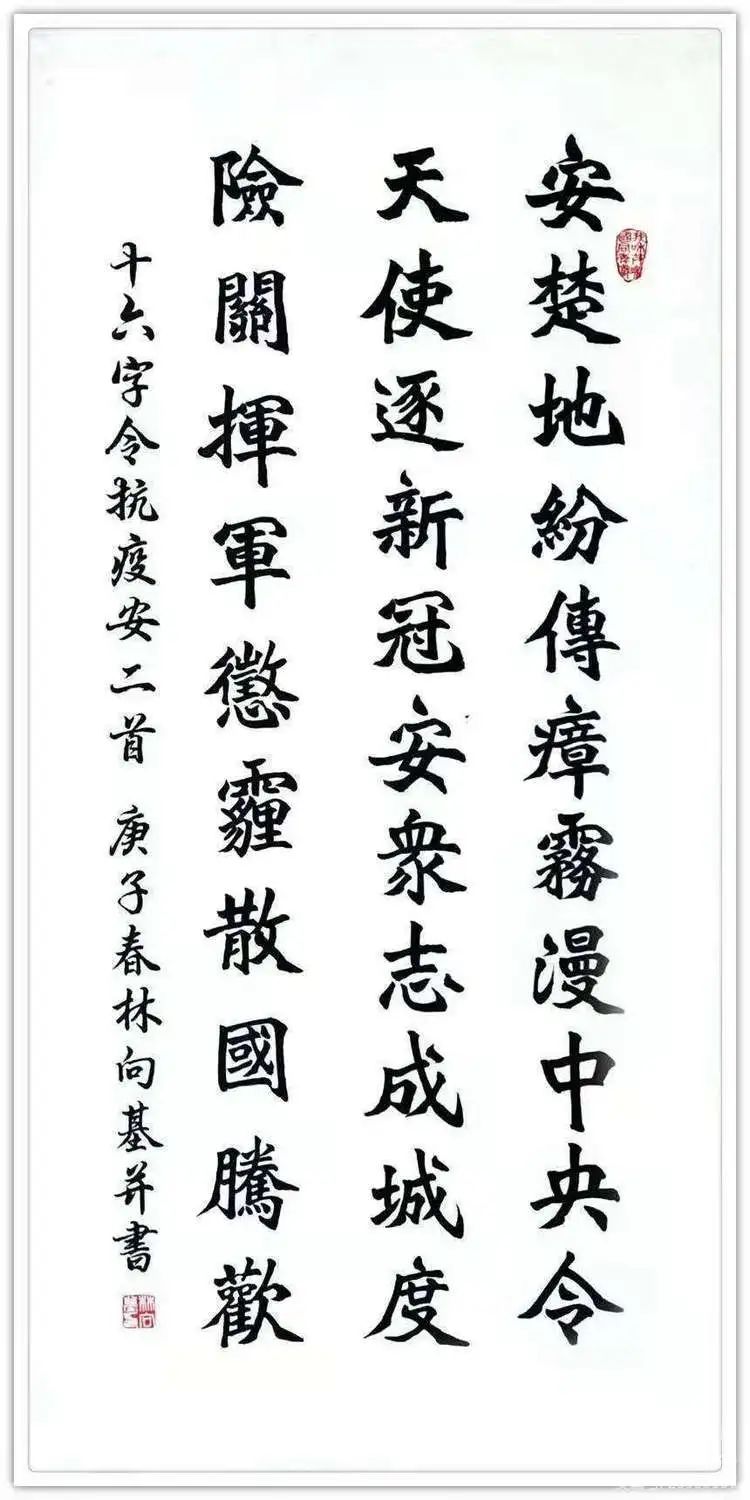 安楚地紛傳瘴霧漫中央令
天使逐新冠安衆志成城度
險關揮軍懲霾散國騰歡
十六字令抗疫安二首 庚子春林向基并書